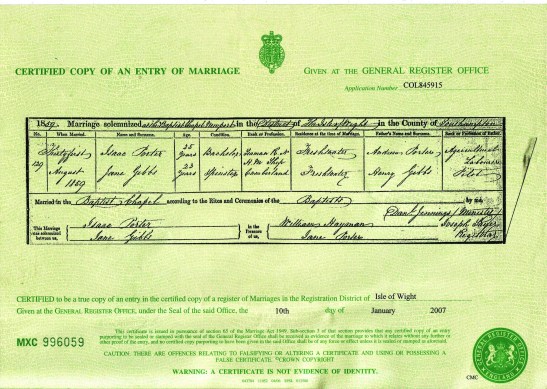 CERTIFIED COPY OF AN ENTRY OF MARRIAGE
GIVEN AT THE GENERAL REGISTER OFFICE
Application Number COL845915
1859 Marriage solemnized at the Baptist Chapel Newport in the District of Isle of Wight in the County of Southampton
No. When Married. Name and Surname. Age. Condition. Rank or Profession. Residence at the time of Marriage. Father's Name and Surname. Rank or Profession of Father.
129 Thirty first August 1859
Isaac Porter 25 Years Bachelor H.M. Ship Cumberland Freshwater Andrew Porter Agricultural Labourer
Jane Gibbs 23 Years Spinster Freshwater Henry Gibbs Pilot
Married in the Baptist Chapel according to the Rites and Ceremonies of the Baptists by me,
This Marriage was solemnized between us, Isaac Porter Jane Gibbs
In the Presence of us, William Jane Porter
Jennings Minister
Joseph Registrar
CERTIFIED to be a true copy of an entry in the certified copy of a register of Marriages in the Registration District of Isle of Wight
Given at the GENERAL REGISTER OFFICE, under the Seal of the said Office, the 10th day of January 2007
MXC 996059
This certificate is issued in pursuance of section 65 of the Marriage Act 1949. Sub-section 3 of that section provides that any certified copy of an entry
purporting to be sealed or stamped with the seal of the General Register Office shall be received as evidence of the marriage to which it relates without any further or
other proof of the entry, and no certified copy purporting to have been given in the said Office shall be of any force or effect unless it is sealed or stamped as aforesaid.
CAUTION: THERE ARE OFFENCES RELATING TO FALSIFYING OR ALTERING A CERTIFICATE AND USING OR POSSESSING A
FALSE CERTIFICATE. ©CROWN COPYRIGHT
WARNING: A CERTIFICATE IS NOT EVIDENCE OF IDENTITY.
CMC
GENERAL REGISTER OFFICE
ENGLAND